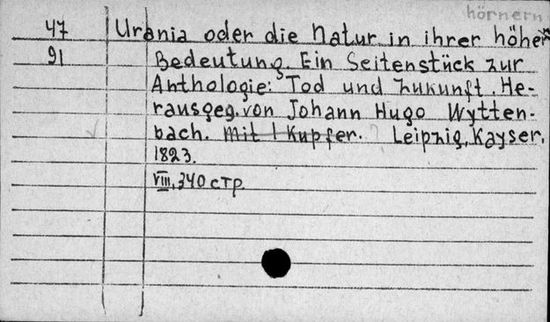 hörnern
47 Urania oder die Natur in ihrer höhern
91 Bedeutung. Ein Seitenstück zur
Anthologie: Tod und Zukunft. He-
rausgeg. von Johann Hugo Wytten-
bach. Mit 1 Kupfer. Leipzig, Kayser,
1823.
VIII, 340 стр.